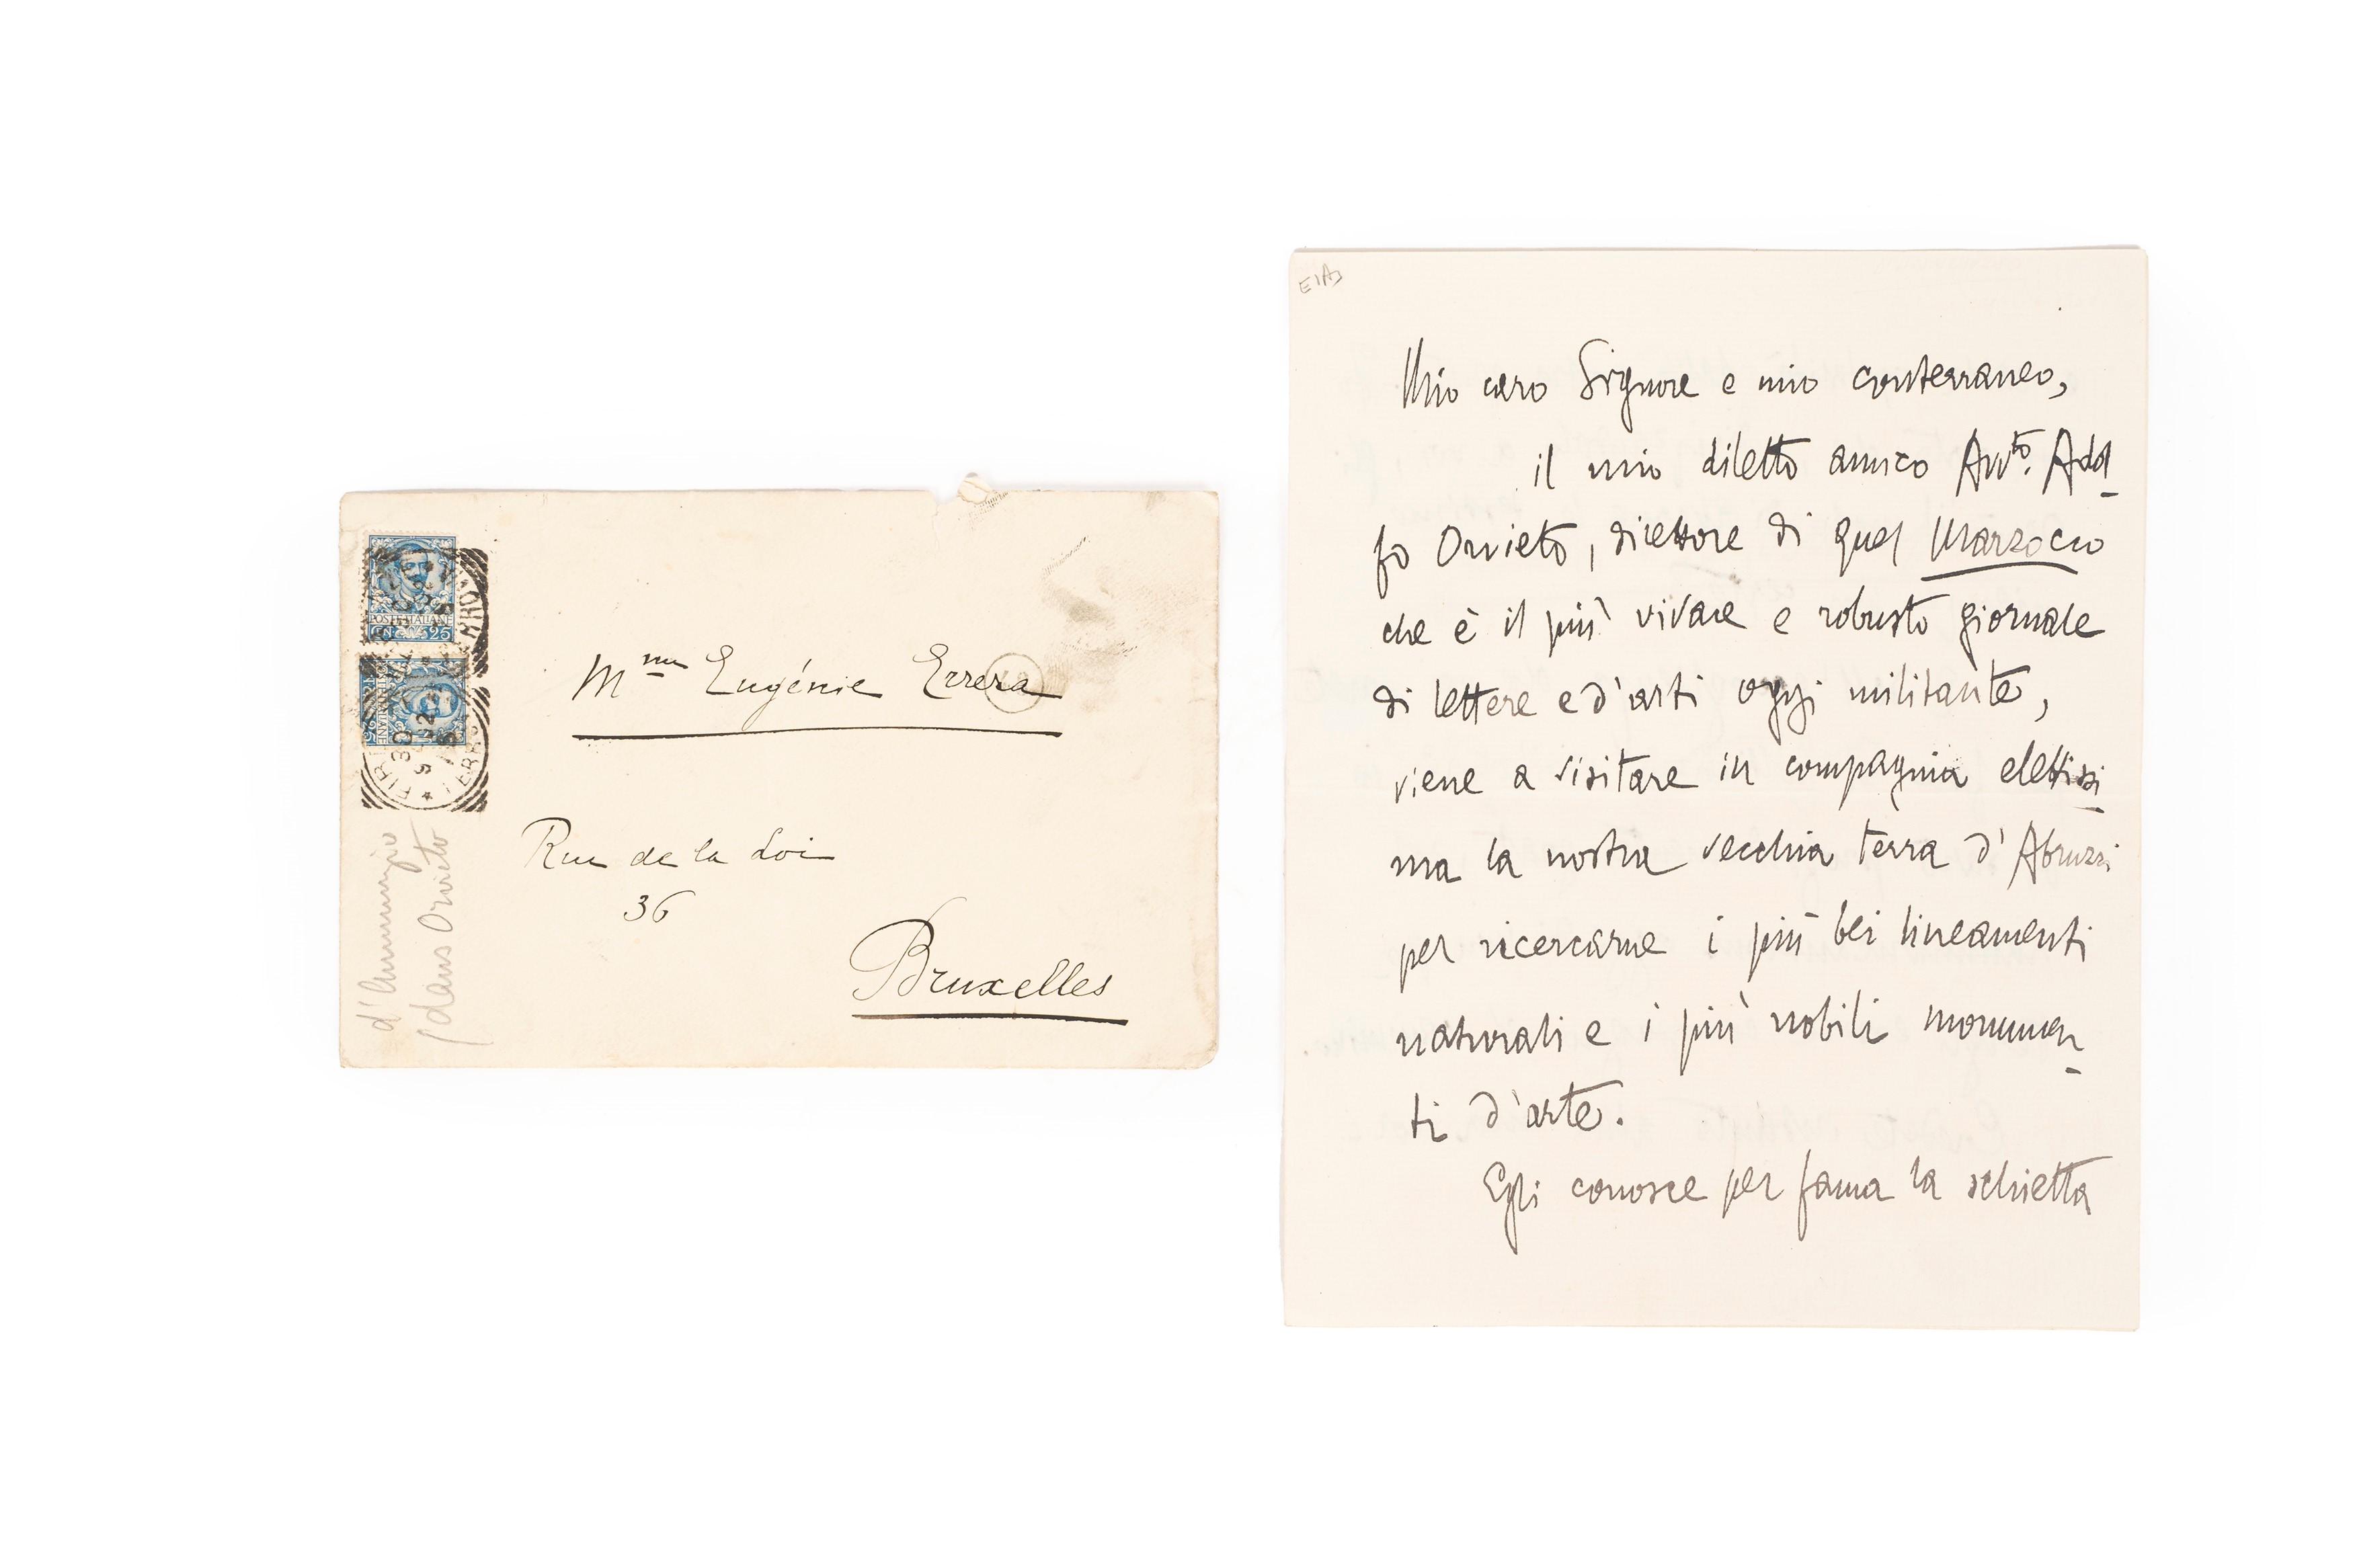 POSTE ITALIANE
CEN. 25
FIR
30
FERROV
d'Annunzio
dans Orvieto
Mme Eugénie Errera
Rue de la Loi
36
Bruxelles
Mio caro Signore e mio conterraneo,
il mio diletto amico Avvto. Adol
fo Orvieto, direttore di quel Marzocco
che è il più vivace e robusto giornale
di lettere e d'arti oggi militante,
viene a visitare in compagnia elettissi
ma la nostra vecchia terra d'Abruzzi
per ricercarne i più bei lineamenti
naturali e i più nobili monumen
ti d'arte.
Egli conosce per fama la schietta